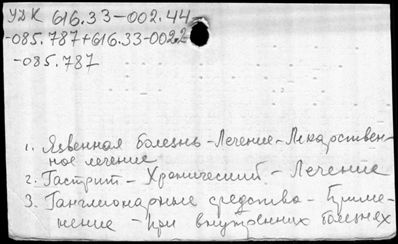 УДК 616.33-002.44-
-085.787+616.33-002.2
-085.787
1. Язвенная болезнь - Лечение - Лекарствен-
ное лечение
2. Гастрит - Хронический - Лечение
3. Ганглионарные средства - Приме-
нение - при внутренних болезнях